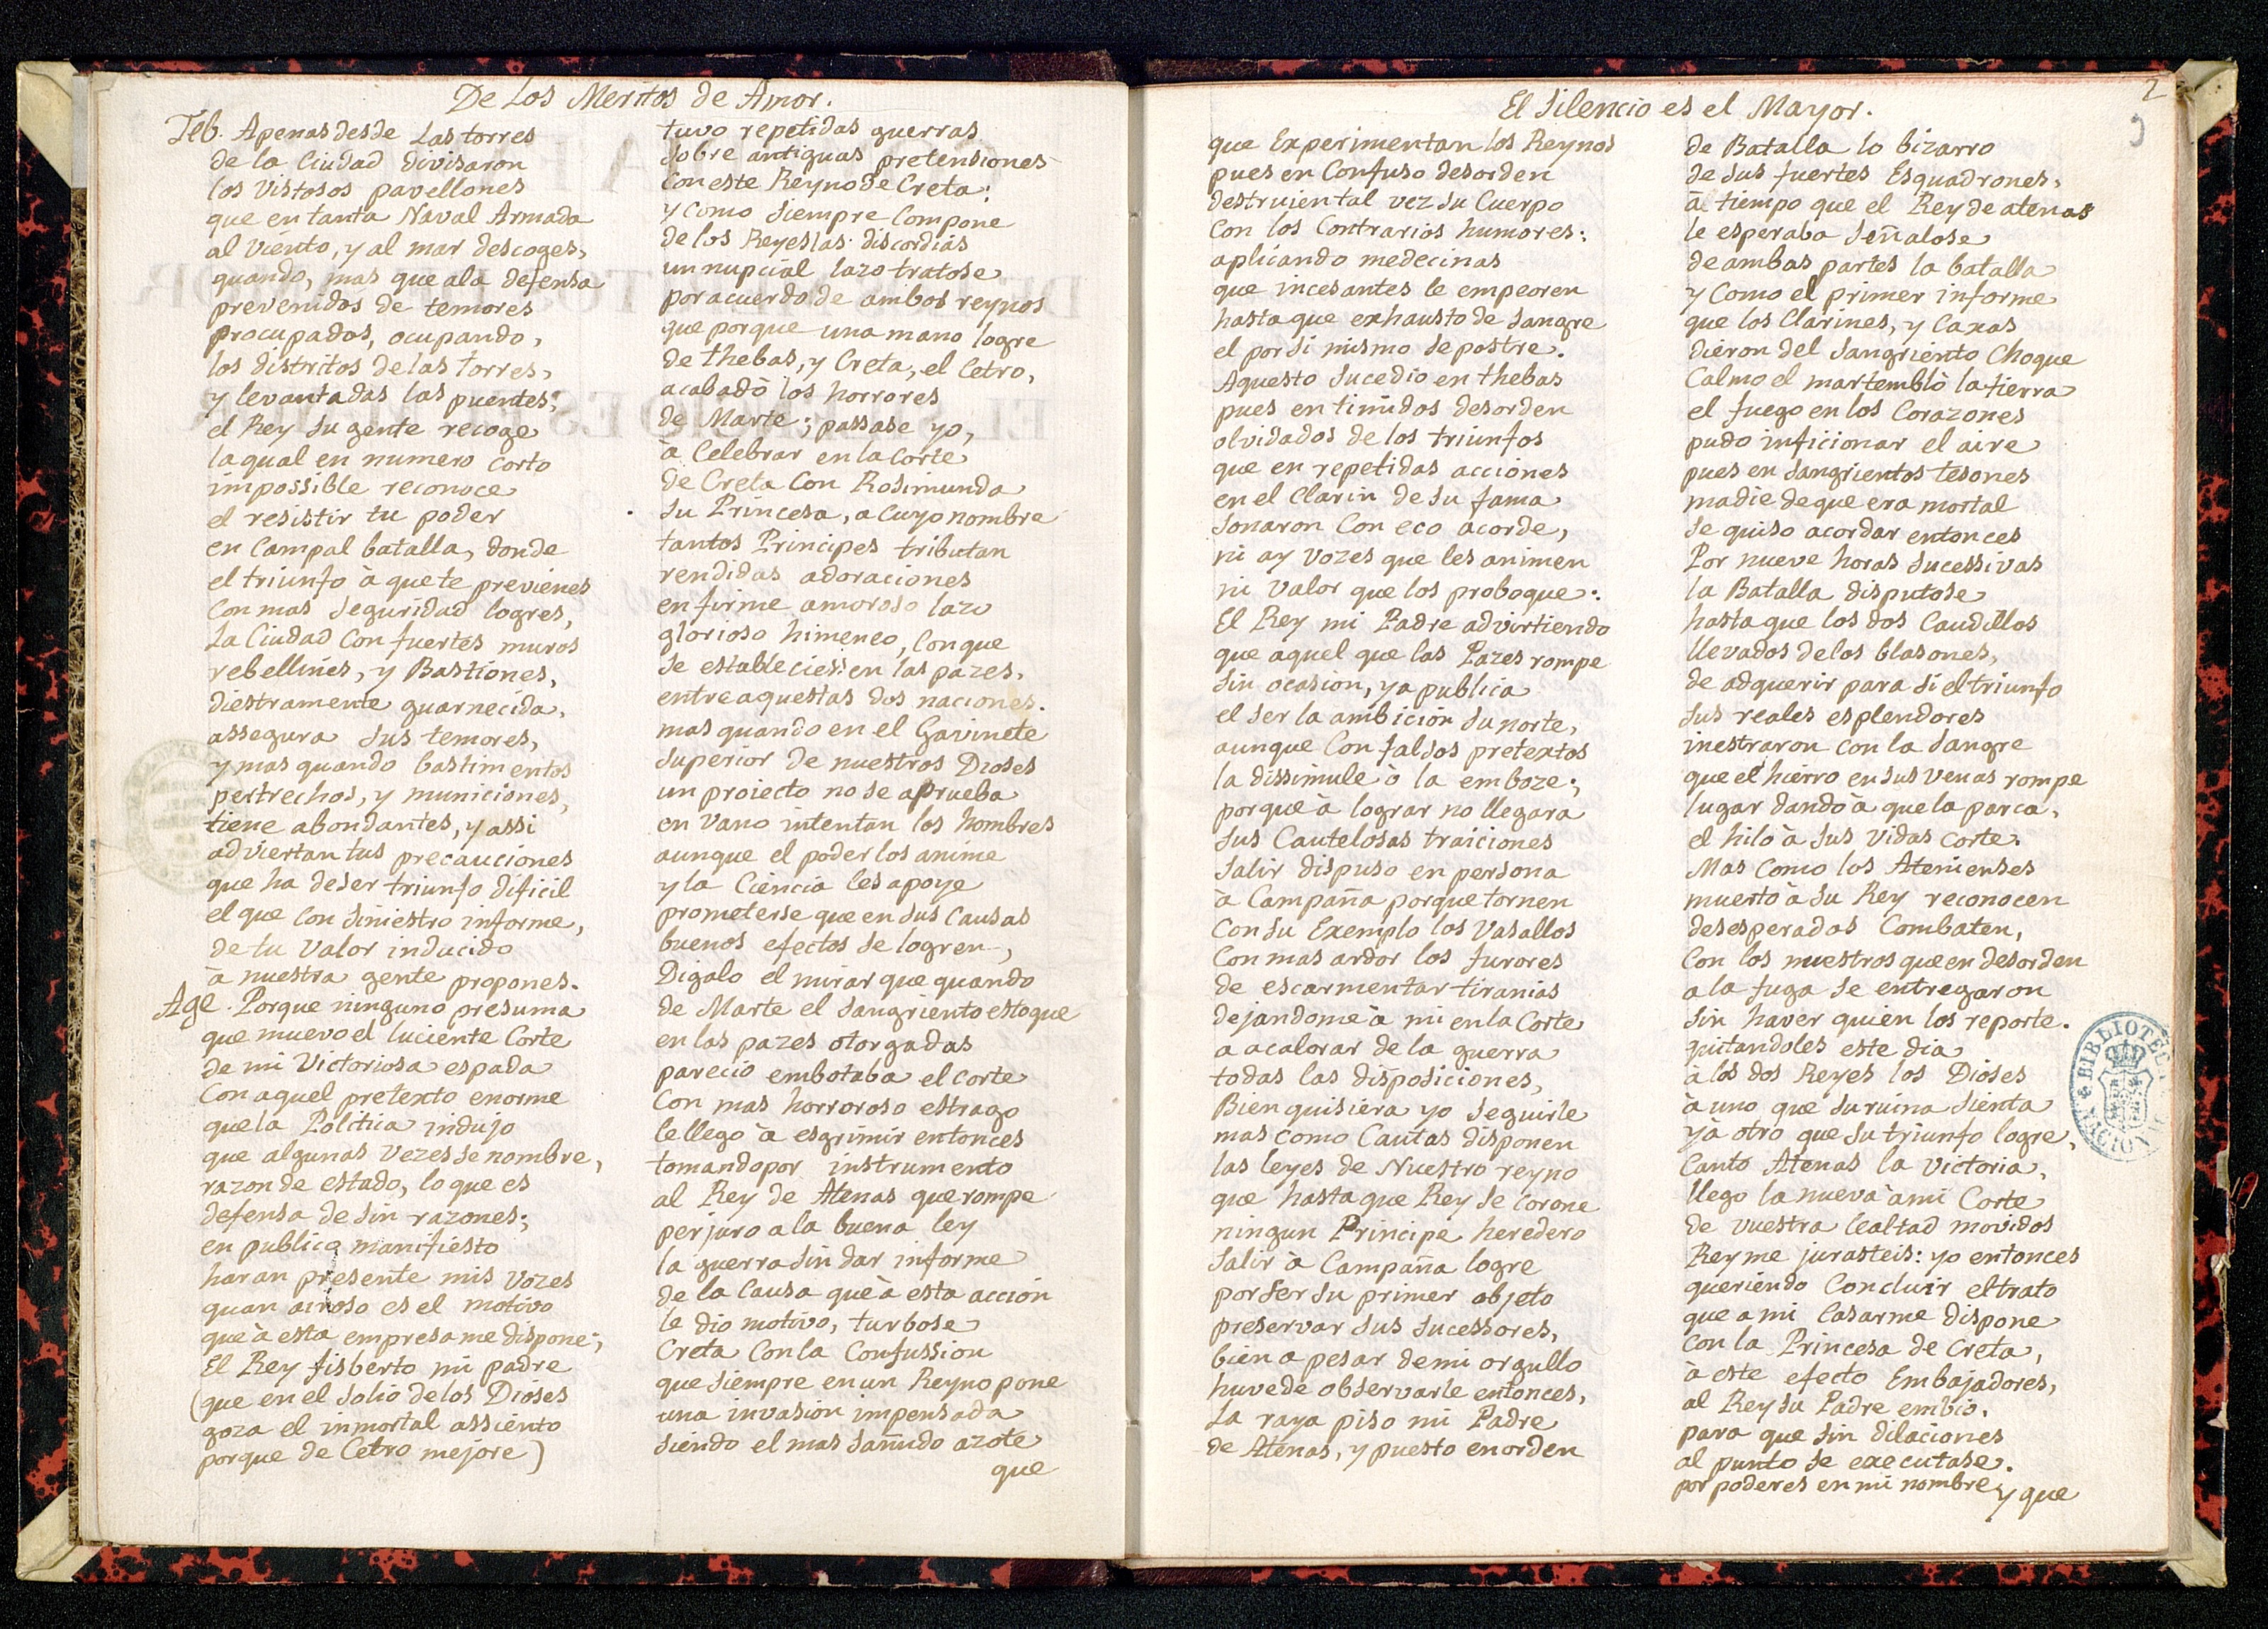 De los Meritos de Amor.
Teb. Apenas desde Las torres
de la Ciudad divisaron
los vistosos pavellones
que en tanta Naval Armada
al viento, y al mar descoges,
quando, mas que ala defensa
prevenidos de temores
procupados, ocupando,
los distritos de las torres,
y levantadas las puentes;
el Rey su gente recoge
la qual en numero corto
impossible reconoce
el resistir tu poder
en Campal batalla, donde
el triunfo à que te previenes
con mas seguridad logres,
La Ciudad con fuertes muros
rebellines, y Bastiones,
diestramente guarnecida,
assegura sus temores,
y mas quando bastimentos
pertrechos, y municiones,
tiene abondantes, y assi
adviertan tus precauciones
que ha de ser triunfo dificil
el que con siniestro informe,
de tu valor inducido
à nuestra gente propones.
Age. Porque ninguno presuma
que muevo el luciente Corte
de mi Victoriosa espada
Con aquel pretexto enorme
que la Politica indujo
que algunas vezes se nombre,
razon de estado, lo que es
defensa de sin razones;
en publico manifiesto
haran presente mis vozes
quan airoso es el motivo
que à esta empresa me dispone;
El Rey fisberto mi padre
(que en el solio de los Dioses
goza el inmortal assiento
porque de Cetro mejore)
tuvo repetidas guerras
sobre antiguas pretensiones
con este Reyno de Creta:
y como siempre compone
de los Reyes las discordias
un nupcial lazo tratose
por acuerdo de ambos reynos
que porque una mano logre
de thebas, y Creta, el Cetro,
acabadò los horrores
de Marte; passase yo,
à Celebrar en la Corte
de Creta Con Rosimunda
su Princesa, a cuyo nombre
tantos Principes tributan
rendidas adoraciones
en firme amoroso lazo
glorioso himeneo, con que
se estableciessen las pazes,
entre aquestas dos naciones.
mas quando en el Gavinete
superior de nuestros Dioses
un proiecto no se aprueba
en vano intentan los hombres
aunque el poder los anime
y la Ciencia les apoye
prometerse que en sus Causas
buenos efectos se logren,
Digalo el mirar que quando
de Marte el sangriento estoque
en las pazes otorgadas
parecio embotaba el corte
Con mas horroroso estrago
le llego à esgrimir entonces
tomando por instrumento
al Rey de Atenas que rompe
perjuro a la buena ley
la guerra sin dar informe
de la Causa que à esta accion
le dio motivo, turbose
Creta Con la Confussion
que siempre en un Reyno pone
una invasion impensada
siendo el mas sañudo azote
que
2
El Silencio es el Mayor.
que Experimentan los Reynos
pues en Confuso desorden
destruien tal vez su Cuerpo
Con los Contrarios humores:
aplicando medecinas
que incesantes le empeoren
hasta que exhausto de sangre
el por si mismo se postre.
Aquesto sucedio en thebas
pues en timidos desorden
olvidados de los triunfos
que en repetidas acciones
en el clarin de su fama
sonaron Con eco acorde,
ni ay vozes que les animen
ni valor que los proboque:
El Rey mi Padre advirtiendo
que aquel que las Pazes rompe
sin ocasion, ya publica
el ser la ambicion su norte,
aunque Con falsos pretextos
la dissimule ò la emboze;
porque à lograr no llegara
sus Cautelosas traiciones
salir dispuso en persona
à Campaña porque tornen
Con su Exemplo los Vasallos
Con mas ardor los furores
de escarmentar tiranias
dejandome à mi en la Corte
a acalorar de la guerra
todas las disposiciones,
Bien quisiera yo seguirle
mas como Cautas disponen
las leyes de Nuestro reyno
que hasta que Rey se Corone
ningun Principe heredero
salir à Campaña logre
por ser su primer objeto
preservar sus sucessores,
bien a pesar de mi orgullo
huve de observarle entonces,
La raya piso mi Padre
de Atenas, y puesto en orden
de Batalla lo bizarro
de sus fuertes Esquadrones,
à tiempo que el Rey de atenas
le esperaba señalose
de ambas partes la batalla
y Como el primer informe
que los Clarines, y Caxas
dieron del sangriento Choque
Calmo el mar temblò la tierra
el fuego en los Corazones
pudo inficionar el aire
pues en sangrientos tesones
nadie de que era mortal
se quiso acordar entonces
Por nueve horas sucessivas
la Batalla disputose
hasta que los dos Caudillos
llevados de los blasones,
de adquerir para si el triunfo
sus reales esplendores
inestraron con la sangre
que el hierro en sus venas rompe
lugar dando à que la parca,
el hilo à sus vidas corte.
Mas Como los Atenienses
muerto à su Rey reconocen
desesperados Combaten,
Con los nuestros que en desorden
a la fuga se entregaron
sin haver quien los reporte.
quitandoles este dia
à los dos Reyes los Dioses
à uno que su ruina sienta
y à otro que su triunfo logre,
Canto Atenas la victoria,
llego la nueva à mi Corte
de vuestra lealtad movidos
Rey me jurasteis: yo entonces
queriendo Concluir el trato
que a mi Casarme dispone
Con la Princesa de Creta,
à este efecto Embajadores,
al Rey su Padre embio,
para que sin dilaciones
al punto se executase.
por poderes en mi nombre
y que
BIBLIOTECA